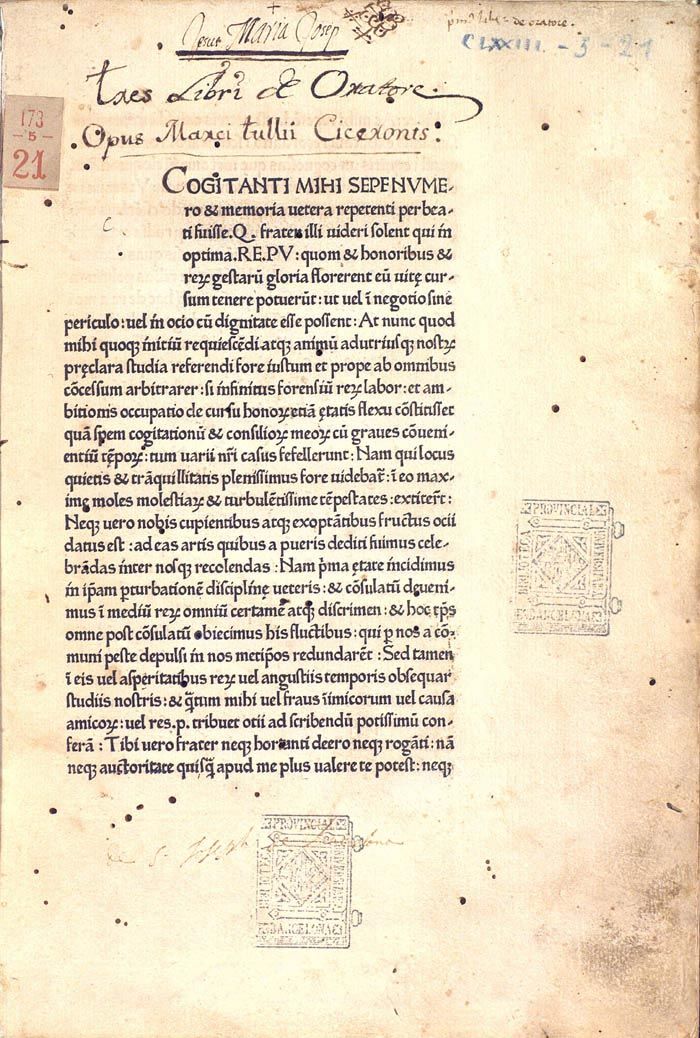 Jesus Maria Josep
pm⁹ liber de oratore.
CLXXIII - 5 - 21
tres Libri de Oratore.
Opus Marci tullii Ciceronis:
173
-5-
21
COGITANTI MIHI SEPENVME-
ro & memoria uetera repetenti perbea-
ti fuisse .Q. frater illi uideri solent qui in
optima .RE.PV: quom & honoribus &
reꝝ gestarũ gloria florerent eũ uitę cur-
sum tenere potuerũt: ut uel ĩ negotio sine
periculo: uel in ocio cũ dignitate esse possent: At nunc quod
mihi quoqꝫ initiũ requiescẽdi atqꝫ animũ adutriusqꝫ nostꝝ
pręclara studia referendi fore iustum et prope ab omnibus
cõcessum arbitrarer: si infinitus forensiũ reꝝ labor: et am-
bitionis occupatio de cursu honoꝝ etiã ętatis flexu cõstitisset
quã spem cogitationũ & consilioꝝ meoꝝ cũ graues cõueni-
entiũ tẽpoꝝ: tum uarii nr̃i casus fefellerunt: Nam qui locus
quietis & trãquillitatis plenissimus fore uidebat̃: ĩ eo max-
imę moles molestiaꝝ & turbulẽtissime tẽpestates: extiter̃t:
Neqꝫ uero nobis cupientibus atqꝫ exoptãtibus fructus ocii
datus est: ad eas artis quibus a pueris dediti fuimus cele-
brãdas inter nosqꝫ recolendas: Nam pꝛ̃ma ętate incidimus
in ip̃am ꝑturbationẽ disciplinę ueteris: & cõsulatũ deueni-
mus ĩ mediũ reꝝ omniũ certamẽ atqꝫ discrimen: & hoc tp̃s
omne post cõsulatũ obiecimus his fluctibus: qui ꝑ nos a cõ-
muni peste depulsi in nos metip̃os redundarẽt: Sed tamen
ĩ eis uel asperitatibus reꝝ uel angustiis temporis obsequar
studiis nostris: & q̃tum mihi uel fraus ĩimicorum uel causa
amicoꝝ: uel res.p. tribuet otii ad scribendũ potissimũ con-
ferã: Tibi uero frater neqꝫ hortanti deero neqꝫ rogãti: nã
neqꝫ auctoritate quisq̃ apud me plus ualere te potest: neqꝫ
BIBLIOTECA
PROVINCIAL
UNIVERSITARIA
DE BARCELONA
BIBLIOTECA
PROVINCIAL
UNIVERSITARIA
DE BARCELONA